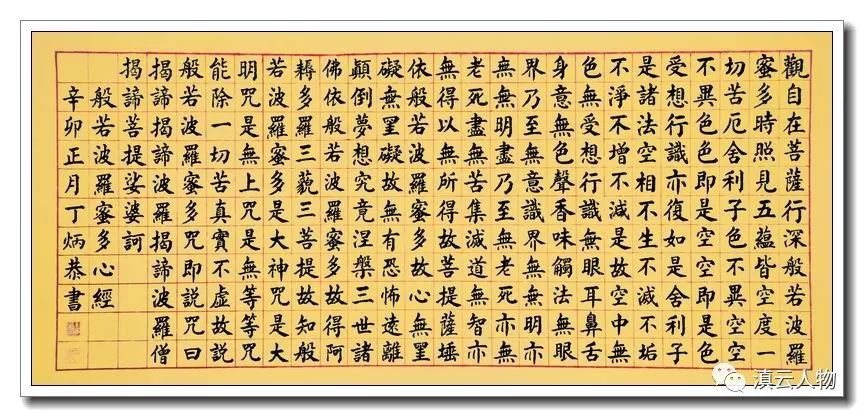 觀自在菩薩行深般若波羅
蜜多時照見五蘊皆空度一
切苦厄舍利子色不異空空
不異色色即是空空即是色
受想行識亦復如是舍利子
是諸法空相不生不滅不垢
不淨不增不減是故空中無
色無受想行識無眼耳鼻舌
身意無色聲香味觸法無眼
界乃至無意識界無無明亦
無無明盡乃至無老死亦無
老死盡無苦集滅道無智亦
無得以無所得故菩提薩埵
依般若波羅蜜多故心無罣
礙無罣礙故無有恐怖遠離
顛倒夢想究竟涅槃三世諸
佛依般若波羅蜜多故得阿
耨多羅三藐三菩提故知般
若波羅蜜多是大神咒是大
明咒是無上咒是無等等咒
能除一切苦真實不虛故說
般若波羅蜜多咒即說咒曰
揭諦揭諦波羅揭諦波羅僧
揭諦菩提娑婆訶
般若波羅蜜多心經
辛卯正月丁炳恭書
滇云人物